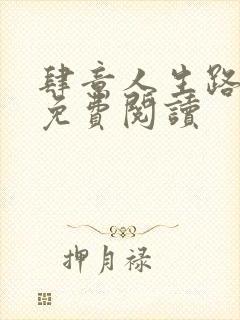 肆意人生路
免費閱讀
押月禄